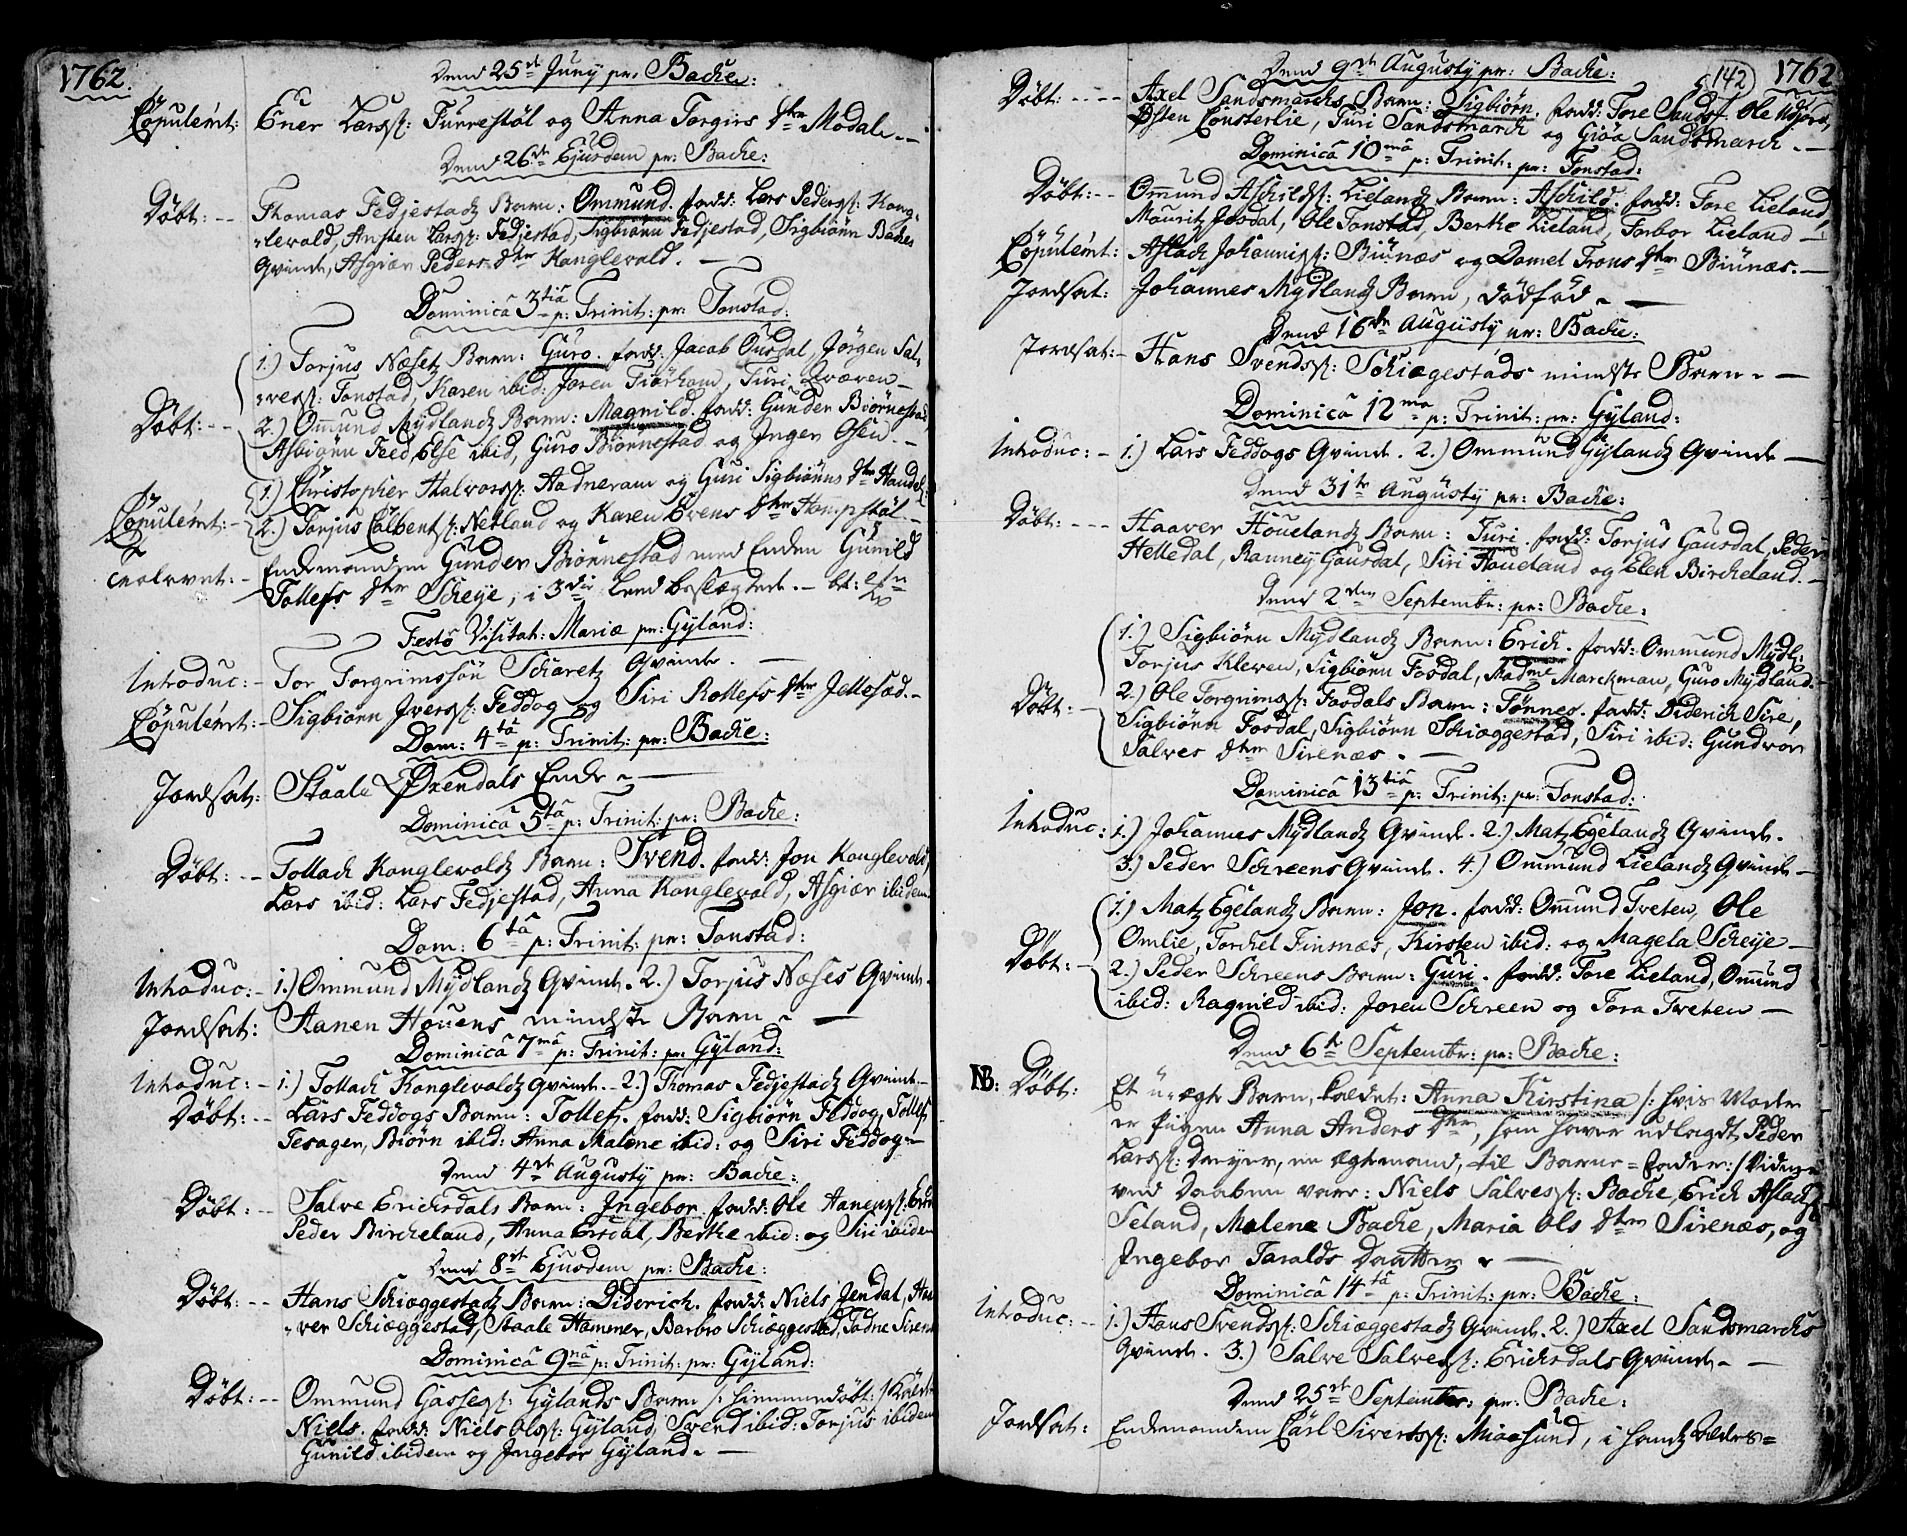 1762.
Dend 25de Juny pr. Backe:
Copulerit: Ener Larss: Furrestøl og Anna Torgirs dtr Modale. -
Dend 26de Ejusdem pr: Backe:
Døbt: -- Thomas Fedjestads Barn: Ommund. fadd: Lars Pederss: Kong-
-levald, Ansten Larss: Fedjestad, Sigbiörn Fedjestad, Sigbiörn Backes
Qvinde, Asgiær Peders dtr Konglevald. -
Dominica 3tia p: Trinit: pr: Tonstad:
1.) Torjus Næsets Barn: Guro. fadd: Jacob Ousdal, Jörgen Sal-
-vess: Tonstad, Karen ibid: Joren Tiørhom, Turi Qvæven -
Døbt: -- 2.) Ommund Mydlands Barn: Magnild. fadd: Gunder Biørnestad,
Asbiörn Feed, Else ibid, Guro Biørnestad og Inger Osen --
1.) Christopher Halvorss: Aadneram og Guri Sigbiörns dtr Handel:
Copulerit: - 2.) Torjus Colbents: Netland og Karen Evens dtr Hompstøl -
Enkemanden Gunder Biørnestad med Enken Gunild
Tollefs dtr Scheye, i 3die Leed beslægtede. -
Festo Visitat: Mariæ pr: Gyland:
Introduc: - Tor Torgrimssön Scharets Qvinde. -
Copulerit: - Sigbiörn Iverss: Feddog og Siri Rollefs dtr Jettesæd. -
Dom: 4ta p: Trinit: pr: Backe:
Jordsat: Staale Øxendals Enke -
Dominica 5ta p: Trinit: pr: Backe:
Døbt: -- Tollach Konglevolds Barn: Svend. fadd: Jon Konglevold,
Lars ibid: Lars Fedjestad, Anna Konglevold, Asgiær ibidem.
Dom: 6ta p: Trinit: pr: Tonstad:
Introduc: - 1.) Ommund Mydlands Qvinde. 2.) Torjus Næses Qvinde.
Jordsat: Aanen Houens mindste Barn -
Dominica 7ma p: Trinit: pr: Gyland:
Introduc: - 1.) Tollach Konglevolds Qvinde. - 2.) Thomas Fedjestads Qvinde -
Døbt: -- Lars Feddogs Barn: Tollef. fadd: Sigbiörn Feddog, Tollef
Tesager, Biörn ibid: Anna Malene ibid: og Siri Feddog -
Dend 4de Augusty pr: Backe:
Døbt: -- Salve Ericksdals Barn: Ingebor. fadd: Ole Aanens:
Peder Bircheland, Anna Ersdal, Berthe ibid: og Siri ibidem
Dend 8de Ejusdem pr: Backe:
Døbt: -- Hans Schiæggestads Barn: Diderich. fadd: Niels Jendal, Haa
-ver Schiæggestad, Staale Hammer, Barbro Schiæggestad, Tadne Sirenæs
Dominica 9na p: Trinit: pr: Gyland:
Døbt: -- Ommund Gasses: Gylands Barn /: hiemmedøbt :/ kaldet
Niels. fadd: Niels Olss: Gyland, Svend ibid: Torjus ibidem
Gunild ibidem og Ingebor Gyland. -
142 1762
Dend 9de Augusty pr: Backe:
Døbt: ---- Axel Sandsmarchs Barn: Sigbiörn. fadd: Tore Sands: Ole
Østen Consterlie, Turi Sandsmarch og Giöa Sandsmarch. -
Dominica 10ma p: Trinit: pr: Tonstad:
Døbt: -- Omund Aschilds: Lielands Barn: Aschild. fadd: Tore Lieland,
Mauritz Josdal, Ole Tonstad, Berthe Lieland, Torbor Lieland -
Copulerit: Aslach Johannis: Biunæs og Domel Trons dtr Biunæs. -
Jordsat: Johannes Mydlands Barn, dødfød -
Dend 16de Augusty pr: Backe:
Jordsat: - Hans Svendss: Schiægestads mindste Barn -
Dominica 12ma p: Trinit: pr: Gyland:
Introduc: - 1.) Lars Feddogs Qvinde. 2.) Ommund Gylands Qvinde -
Dend 31te Augusty pr: Backe:
Døbt: --- Haaver Houelands Barn: Turi. fadd: Torjus Gausdal, Peder
Helledal, Ranney Gausdal, Siri Houeland og Elen Bircheland. -
Dend 2den Septembr: pr: Backe:
1.) Sigbiörn Mydlands Barn: Erich. fadd: Ommund Mydl:
Torjus Kleven, Sigbiörn Josdal, Madme Marchman, Guro Mydland. -
Døbt: - 2.) Ole Torgrims: Josdals Barn: Tønnes. fadd: Diderich Sire,
Sigbiörn Josdal, Sigbiörn Schiæggestad, Siri ibid: Gundvor
Salves dtr Sirenæs. -
Dominica 13tia p: Trinit: pr: Tonstad:
Introduc: 1.) Johannes Mydlands Qvinde. 2.) Matz Egelands Qvinde.
3.) Peder Schreens Qvinde. 4.) Ommund Lielands Qvinde -
1.) Matz Egelands Barn: Jon. fadd: Omund Tveten, Ole
Omlie, Torchel Finsnæs, Kirsten ibid: og Magela Scheye -
Døbt: - 2.) Peder Schreens Barn: Guri. fadd: Tore Lieland, Omund
ibid: Ragnild ibid: Joren Schreen og Tora Tveten -
Dend 6te Septembr: pr: Backe:
NB: Døbt: Et u-ægte Barn, kaldet: Anna Kirstina /: hvis Moder
er Pigen Anna Anders dtr, som haver udlagdt Peder
Larss: Dreyer, en ægtemand, til Barne-fader :/ Vidner
ved Daaben vare: Niels Salvess: Backe, Erich Aslachs:
Seland, Malene Backe, Maria Ols dtr Sirenæs, og
Ingebor Taralds Daatter -
Dominica 14ta p: Trinit: pr: Backe:
Introduc: -- 1.) Hans Svendss: Schiæggestads Qvinde. 2.) Axel Sandsmarchs
Qvinde. 3.) Salve Salvess: Ericksdals Qvinde - -
Dend 25de Septembr: pr: Backe:
Jordsat: Enkemanden Carl Sivertss: Miaasund, i hands Alders=